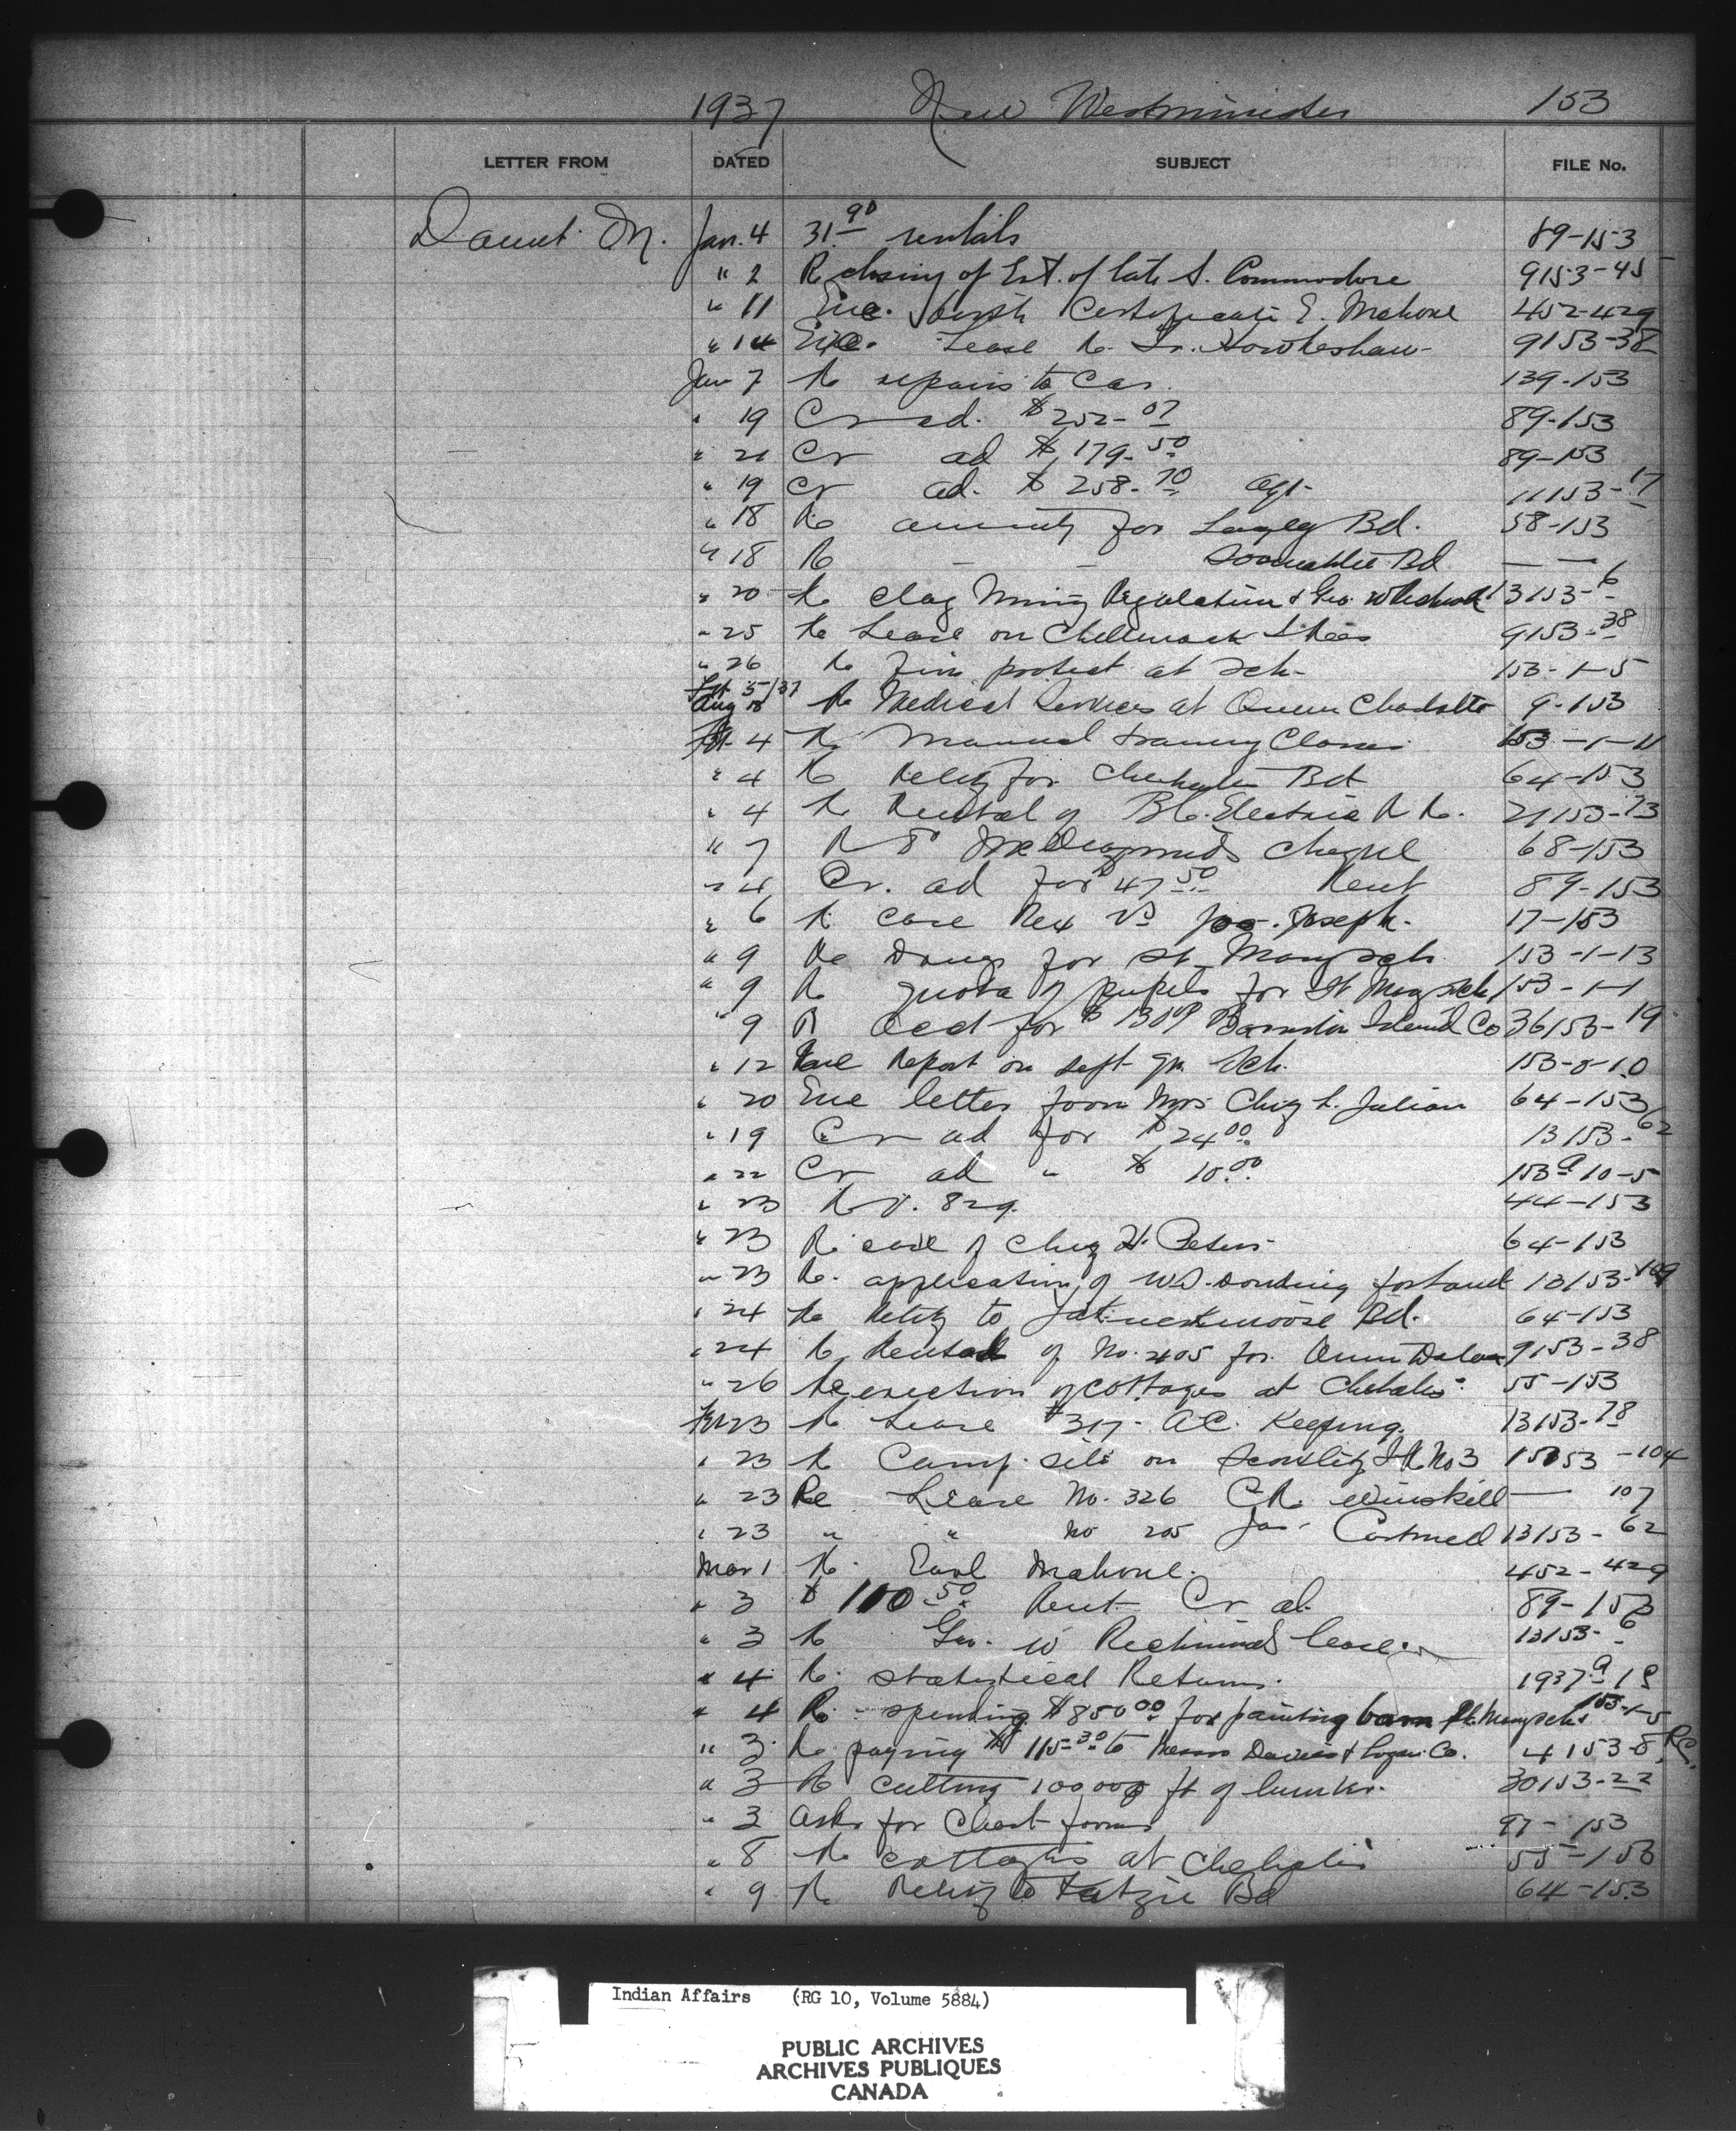 1937 New Westminster 153
LETTER FROM DATED SUBJECT FILE No.
M. Jan. 4 31.90 rentals 89-153
" 2 Re closing of Est. of late S. Commodore 9153-45
" 11 Enc. birth Certificate E. Malone 452-429
" 14 Enc. Lease Re 9153-38
Jan 7 Re repairs to Car. 139-153
" 19 Cr ad. $252-07 89-153
" 21 Cr ad $179-50 89-153
" 19 Cr ad. $258-70 agr- 11153-17
" 18 Re annuity for Bd. 58-153
" 18 Re – – Bd — —
" 20 Re Clay Mining Regulation & Geo. 13153-6
" 25 Re Lease on 9153-38
" 26 Re Fire protect at Sch- 153-1-5
Re Medical Services at Queen Charlotte 9-153
4 Re Manual training Classes 153-1-11
" 4 Re Relief for Bd 64-153
" 4 Re Rental of B.C. Electric R R. 21153-13
" 7 Cheque 68-153
" 4 Cr. ad for $47.50 Rent 89-153
" 6 Re case Rex vs Jos. Joseph. 17-153
" 9 Re Drugs for St Mary Sch. 153-1-13
" 9 Re quota of pupils for St Mary Sch 153-1-1
" 9 R acct for $ Barnston Island Co 36153-19
" 12 Enc Report on Sept qr. Sch. 153-8-10
" 20 Enc letter from Mrs Chas. L. Julian 64-153
" 19 Cr ad for $24.00 13153-62
" 22 Cr ad " $10.00 153-10-5
" 23 R V. 829. 44-153
" 23 Re case of H. Peters- 64-153
" 23 Re. application of W.D. for land 13153-109
" 24 Re Relief to Bd. 64-153
" 24 Re Rental of No. 405 for 9153-38
" 26 Re erection of cottages at Chehalis. 55-153
23 Re Lease #317- A.C. Keeping. 13153-78
" 23 Re Camp. site on I R No 3 15153-104
" 23 Re Lease No. 326 C.R. Winskill — 107
" 23 " " No 205 Jas. 13153-62
Mar 1 Re Earl Malone. 452-429
" 3 $110.50 Rent Cr ad. 89-153
" 3 Re Geo. W Richmond lease. 13153-6
" 4 Re. Statistical Returns. 1937-
" 4 Re - spending $850.00 for painting barn St. Mary Sch. 153-1-5
" 3 Re paying $115.30 to Messrs Davies & Co. 4153-8
" 3 Re cutting 100000 ft of lumber. 30153-22
" 3 Asks for Chest forms 97-153
" 8 Re cottages at Chehalis 55-153
" 9 Re Relief to Katzie Bd 64-153
Indian Affairs (RG 10, Volume 5884)
PUBLIC ARCHIVES
ARCHIVES PUBLIQUES
CANADA